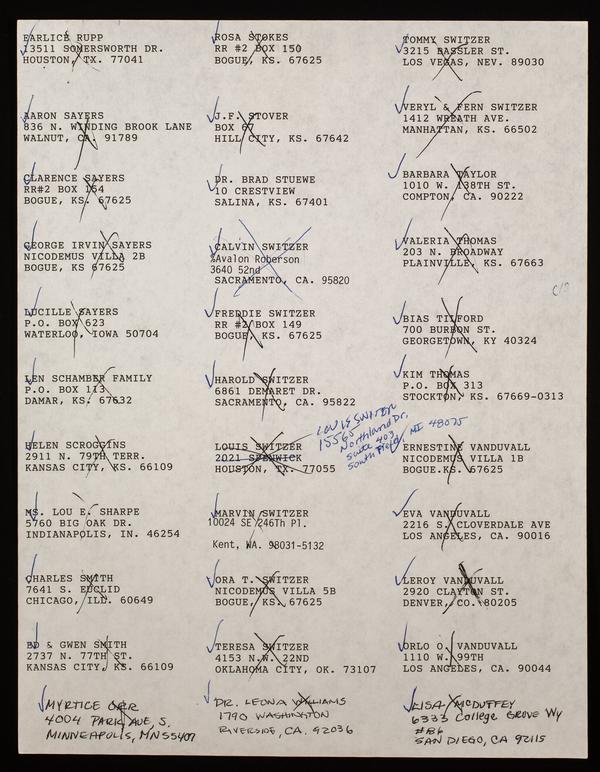 EARLICE RUPP
13511 SOMERSWORTH DR.
HOUSTON, TX. 77041
AARON SAYERS
836 N. WINDING BROOK LANE
WALNUT, CA. 91789
CLARENCE SAYERS
RR#2 BOX 164
BOGUE, KS. 67625
GEORGE IRVIN SAYERS
NICODEMUS VILLA 2B
BOGUE, KS 67625
LUCILLE SAYERS
P.O. BOX 623
WATERLOO, IOWA 50704
LEN SCHAMBER FAMILY
P.O. BOX 113
DAMAR, KS. 67632
HELEN SCROGGINS
2911 N. 79TH TERR.
KANSAS CITY, KS. 66109
MS. LOU E. SHARPE
5760 BIG OAK DR.
INDIANAPOLIS, IN. 46254
CHARLES SMITH
7641 S. EUCLID
CHICAGO, ILL. 60649
ED & GWEN SMITH
2737 N. 77TH ST.
KANSAS CITY, KS. 66109
MYRTICE ORR
4004 PARK AVE, S.
MINNEAPOLIS, MN 55407
ROSA STOKES
RR #2 BOX 150
BOGUE, KS. 67625
J.F. STOVER
BOX 67
HILL CITY, KS. 67642
DR. BRAD STUEWE
10 CRESTVIEW
SALINA, KS. 67401
CALVIN SWITZER
%Avalon Roberson
3640 52nd
SACRAMENTO, CA. 95820
FREDDIE SWITZER
RR #2 BOX 149
BOGUE, KS. 67625
HAROLD SWITZER
6861 DEMARET DR.
SACRAMENTO, CA. 95822
LOUIS SWITZER
2021 SPENWICK
HOUSTON, TX. 77055
LOUIS SWITZER
15565 Northland Dr.
Suite 403
Southfield, MI 48075
MARVIN SWITZER
10024 SE 246Th Pl.
Kent, WA. 98031-5132
ORA T. SWITZER
NICODEMUS VILLA 5B
BOGUE, KS. 67625
TERESA SWITZER
4153 N.W. 22ND
OKLAHOMA CITY, OK. 73107
DR. LEONA WILLIAMS
1790 WASHINGTON
RIVERSIDE, CA. 92036
TOMMY SWITZER
3215 BASSLER ST.
LOS VEGAS, NEV. 89030
VERYL & FERN SWITZER
1412 WREATH AVE.
MANHATTAN, KS. 66502
BARBARA TAYLOR
1010 W. 138TH ST.
COMPTON, CA. 90222
VALERIA THOMAS
203 N. BROADWAY
PLAINVILLE, KS. 67663
BIAS TILFORD
700 BURBON ST.
GEORGETOWN, KY 40324
KIM THOMAS
P.O. BOX 313
STOCKTON, KS. 67669-0313
ERNESTINE VANDUVALL
NICODEMUS VILLA 1B
BOGUE.KS. 67625
EVA VANDUVALL
2216 S. CLOVERDALE AVE
LOS ANGELES, CA. 90016
LEROY VANDUVALL
2920 CLAYTON ST.
DENVER, CO. 80205
ORLO O. VANDUVALL
1110 W. 99TH
LOS ANGELES, CA. 90044
LISA McDUFFEY
6333 College Grove Wy
#B6
SAN DIEGO, CA 92115